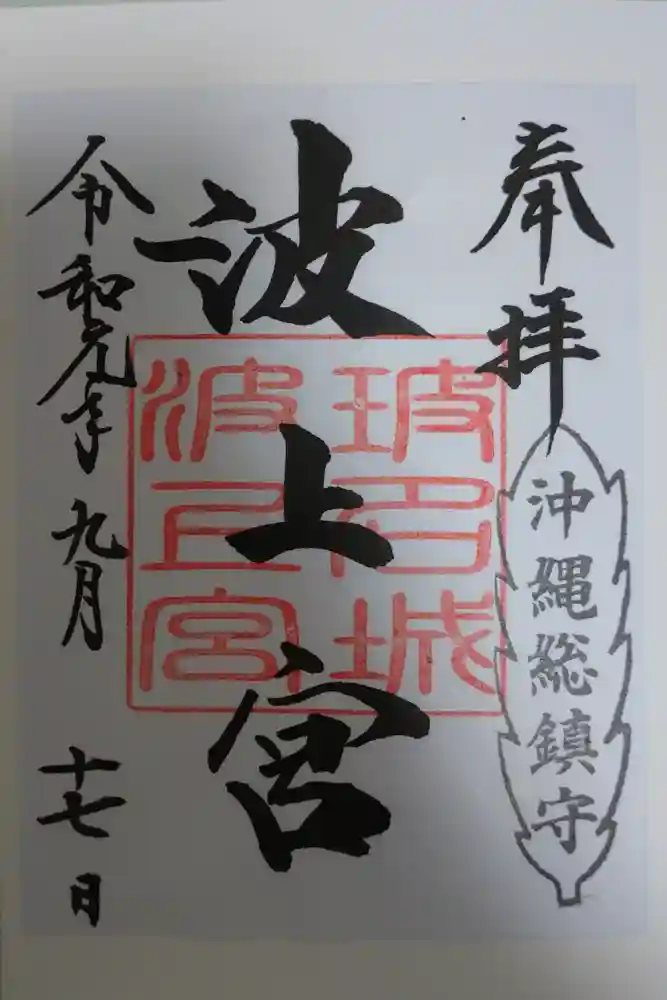 奉拝
沖縄総鎮守
波上宮
玻名城
波上宮
令和元年九月十七日